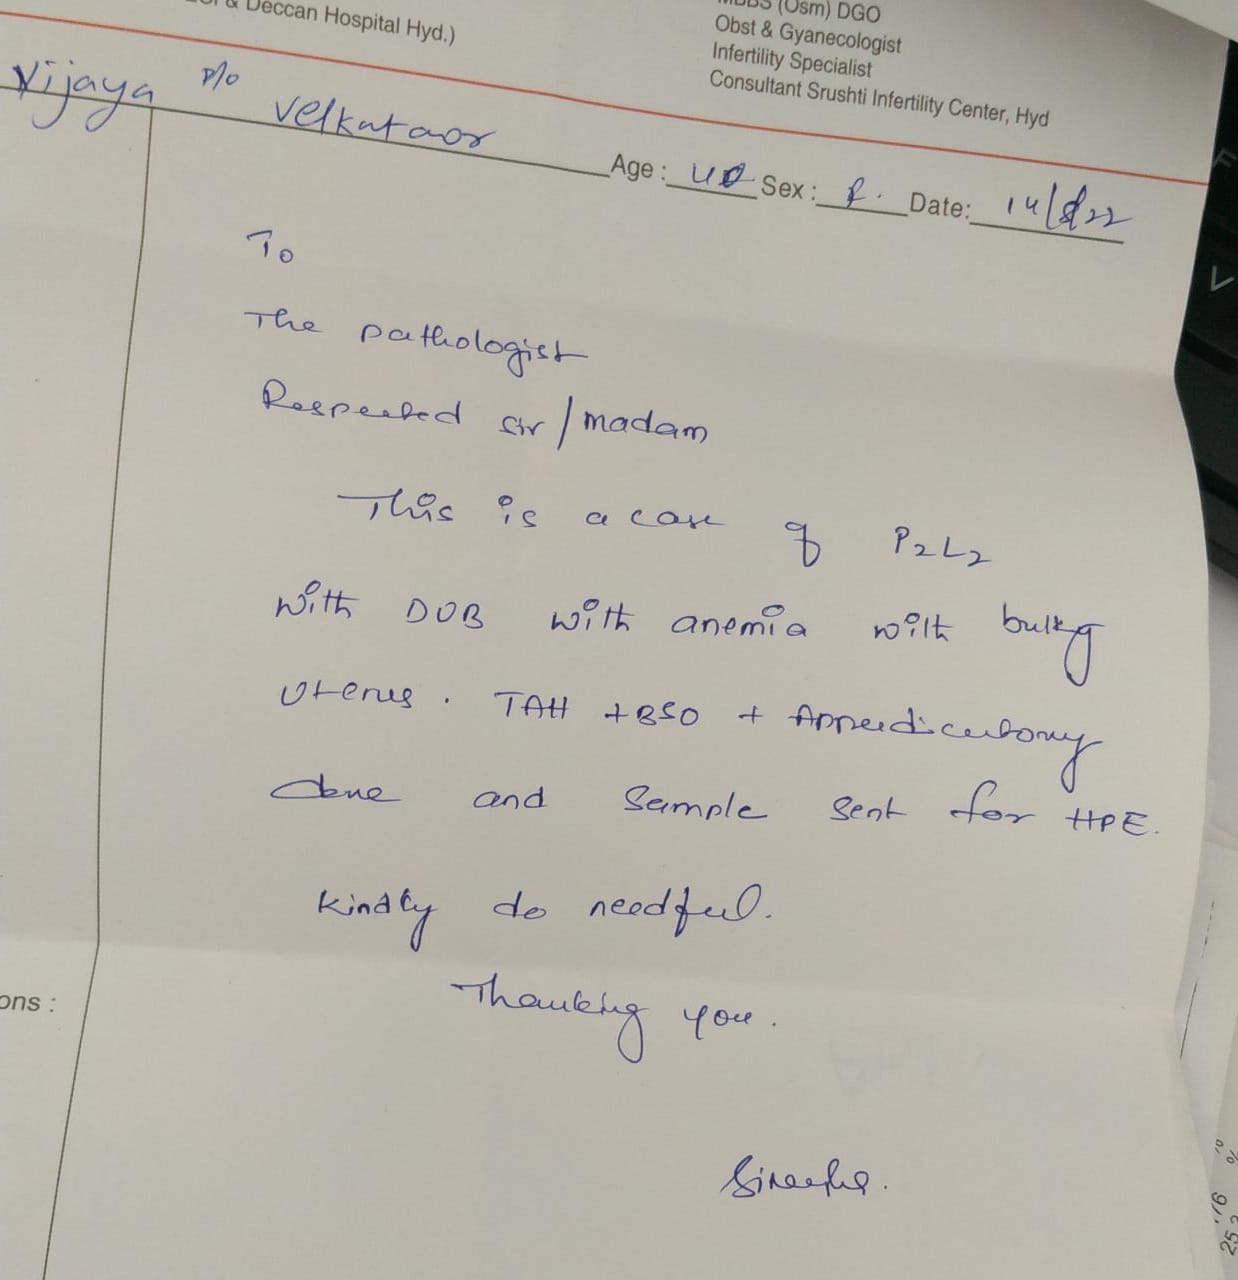 & Deccan Hospital Hyd.)
MBBS (Osm) DGO
Obst & Gyanecologist
Infertility Specialist
Consultant Srushti Infertility Center, Hyd
Vijaya
Age: 40 Sex: F. Date: 14/8/22
To
The pathologist
Respected sir/madam
This is a case of P2L2
with DUB with anemia with bulky
uterus. TAH + BSO + Appendicectomy
done and Sample sent for HPE.
Kindly do needful.
Thanking you.
ons :